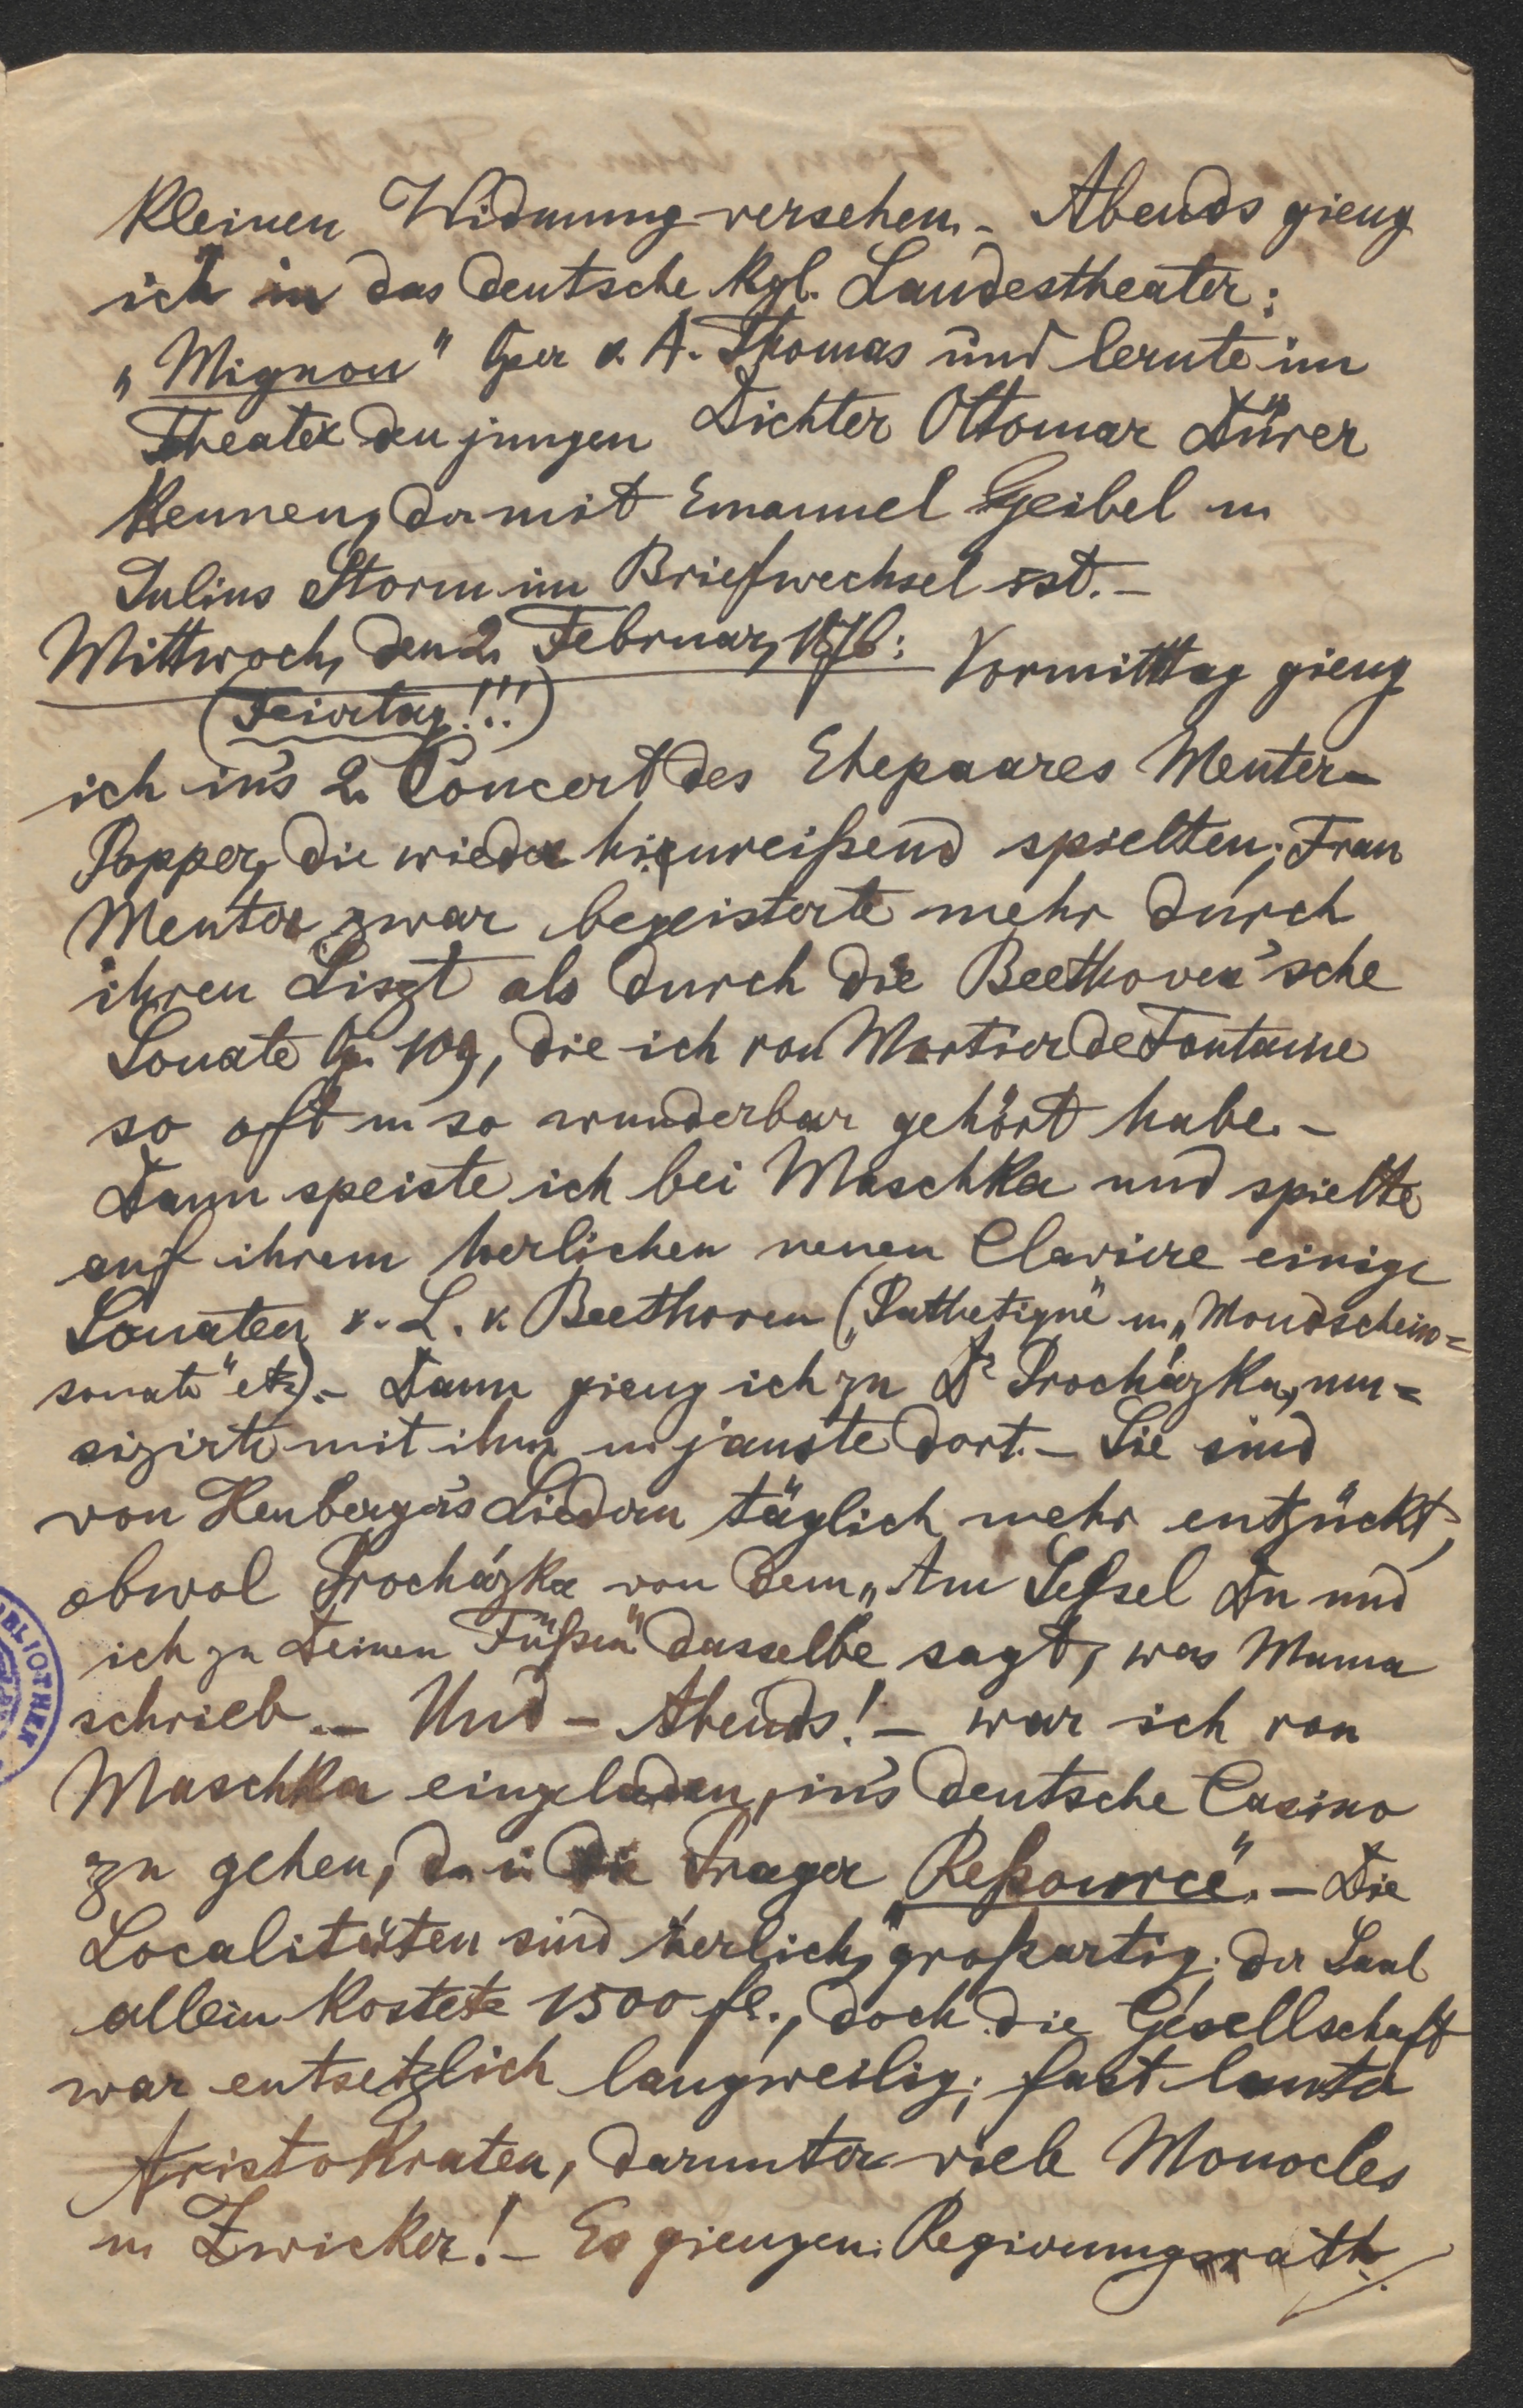 kleinen Widmung versehen. – Abends gieng
ich in das deutsche kgl. Landestheater:
„Mignon" Oper v. A. Thomas und lernte im
Theater den jungen Dichter Ottomar Dürer
kennen, der mit Emanuel Geibel u
Julius Storm im Briefwechsel ist. –
Mittwoch, den 2. Februar, 1876: Vormittag gieng
(Feiertag!!!)
ich in's 2. Concert des Ehepaares Menter-
Popper, die wieder hinreißend spielten; Frau
Menter zwar begeisterte mehr durch
ihren Liszt als durch die Beethoven'sche
Sonate Op. 109, die ich von Mortier de Fontaine
so oft u so wunderbar gehört habe. –
Dann speiste ich bei Maschka und spielte
auf ihrem herlichen neuen Claviere einige
Sonaten v. L. v. Beethoven („Pathetique" u „Mondschein=
sonate" etz). – Dann gieng ich zu Dr Procházka, mu=
sizirte mit ihm u jauste dort. – Sie sind
von Heuberger's Liedern täglich mehr entzückt,
obwol Procházka von dem „Am Seßsel Du und
ich zu Deinen Füßen" dasselbe sagt, was Mama
schrieb. – Und – Abends! – war ich von
Maschka eingeladen, in's deutsche Casino
zu gehen, da in die Prager „Reßource". – Die
Localitäten sind herlich, großartig; der Saal
allein kostete 1500 fl., doch die Gesellschaft
war entsetzlich langweilig; fast lauter
Aristokraten, darunter viele Monocles
u Zwicker! – Es giengen: Regierungsrath
BIBLIOTHEK